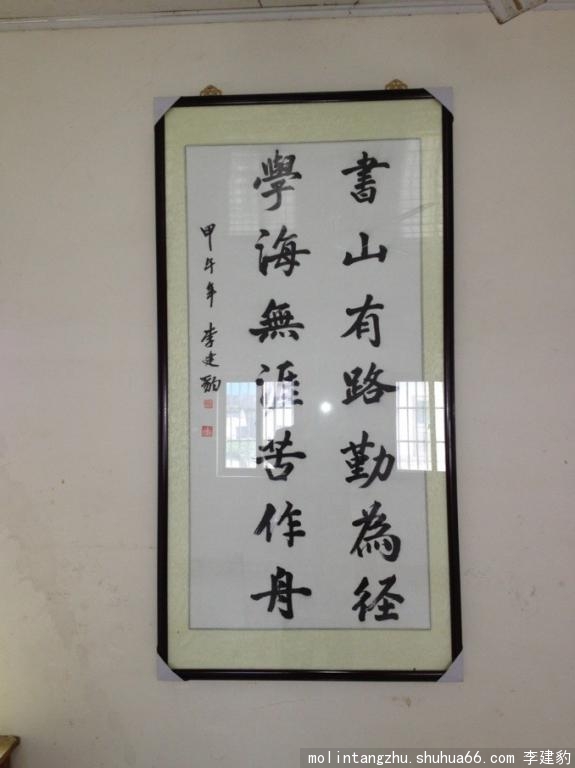 書山有路勤為径
學海無涯苦作舟
甲午年 李建豹
molintangzhu.shuhua66.com 李建豹